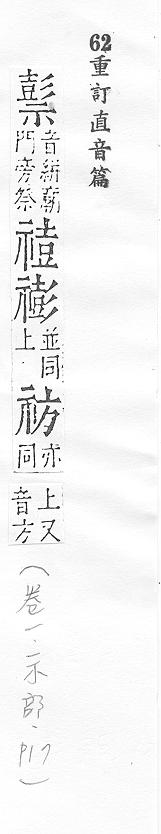 62重訂直音篇
音絣廟
門旁祭
𥛱
並同
上
祊
亦
同
上又
音方
(卷一·示部·P17)